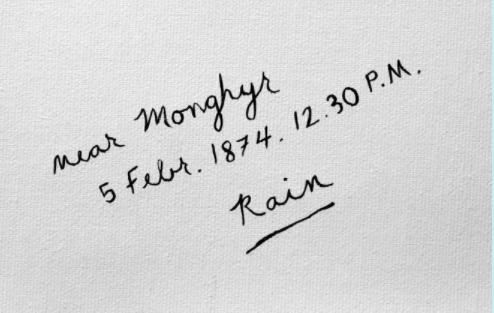 near Monghyr
5 Febr. 1874. 12.30 P.M.
Rain